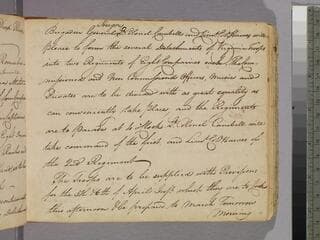 Brigadier General Colonel Cambell and Lieut. Col. Hawes will
Please to form the several Detachments of Virginia Troops
into two Regiments of Eight Companies each Those
and Non Commissioned Officers, Musics and
Privates are to be divided with as great equality as
can conveniently take Place and the Regiments
are to Parade at 12 oClock Lt. Colonel Cambell will
take command of the first and Lieut. Col. Hawes of
the 2nd Regiment
The Troops are to be supplied with Provisions
for the 5th & 6th of April Inst which they are to Cook
this afternoon & be prepared to march Tomorrow
Morning